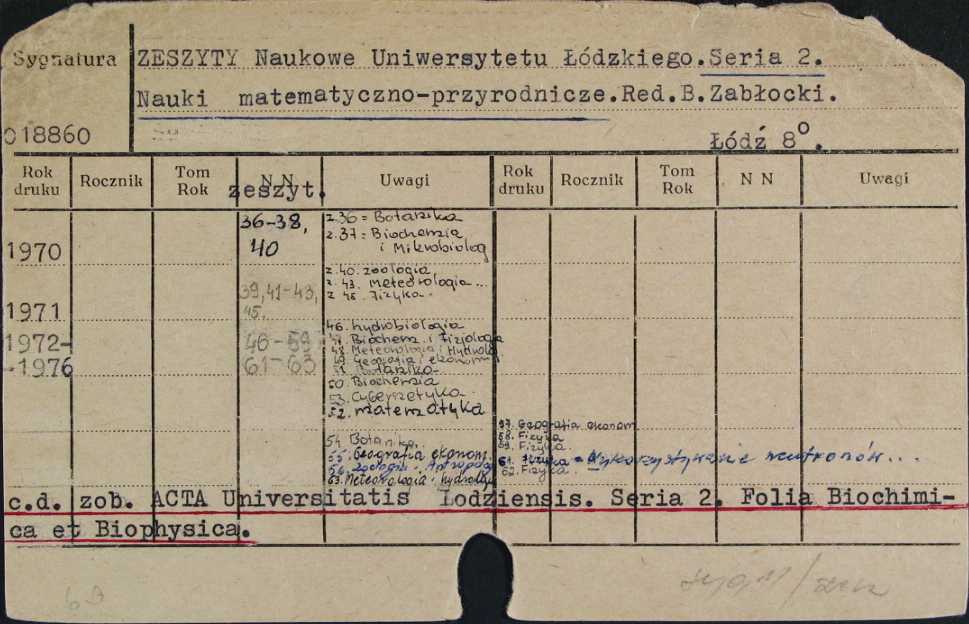 Sygnatura
ZESZYTY Naukowe Uniwersytetu Łódzkiego.Seria 2.
Nauki matematyczno-przyrodnicze.Red.B.Zabłocki.
018860
Łódź 8⁰.
Rok druku Rocznik Tom Rok N N Uwagi Rok druku Rocznik Tom Rok N N Uwagi
zeszyt.
36-38, z.36 = Botanika
z.37: Biochemia
1970 40 i Mikrobiolog
z.40. zoologia
39,41-43, z. 43. Meteorologia...
z 45. Fizyka.
1971 45.
46. hydrobiologia
1972- 46-59 Biochem. i Fizjologia
48. Meteorologia i Hydrolog
49 Geografia ekonom.
-1976 61-63 51 Botanika
50. Biochemia
53. Cybernetyka
52. matematyka
57. Geografia ekonom
58. Fizyka
54 Botanika 59. Fizyka.
55. Geografia ekonom. 61. Fizyka = Wykorzystywanie neutronów...
56. Zoologia i Antropolog 62. Fizyka
63. Meteorologia i hydrolog
c.d. zob. ACTA Universitatis Lodziensis. Seria 2. Folia Biochimi-
ca et Biophysica.